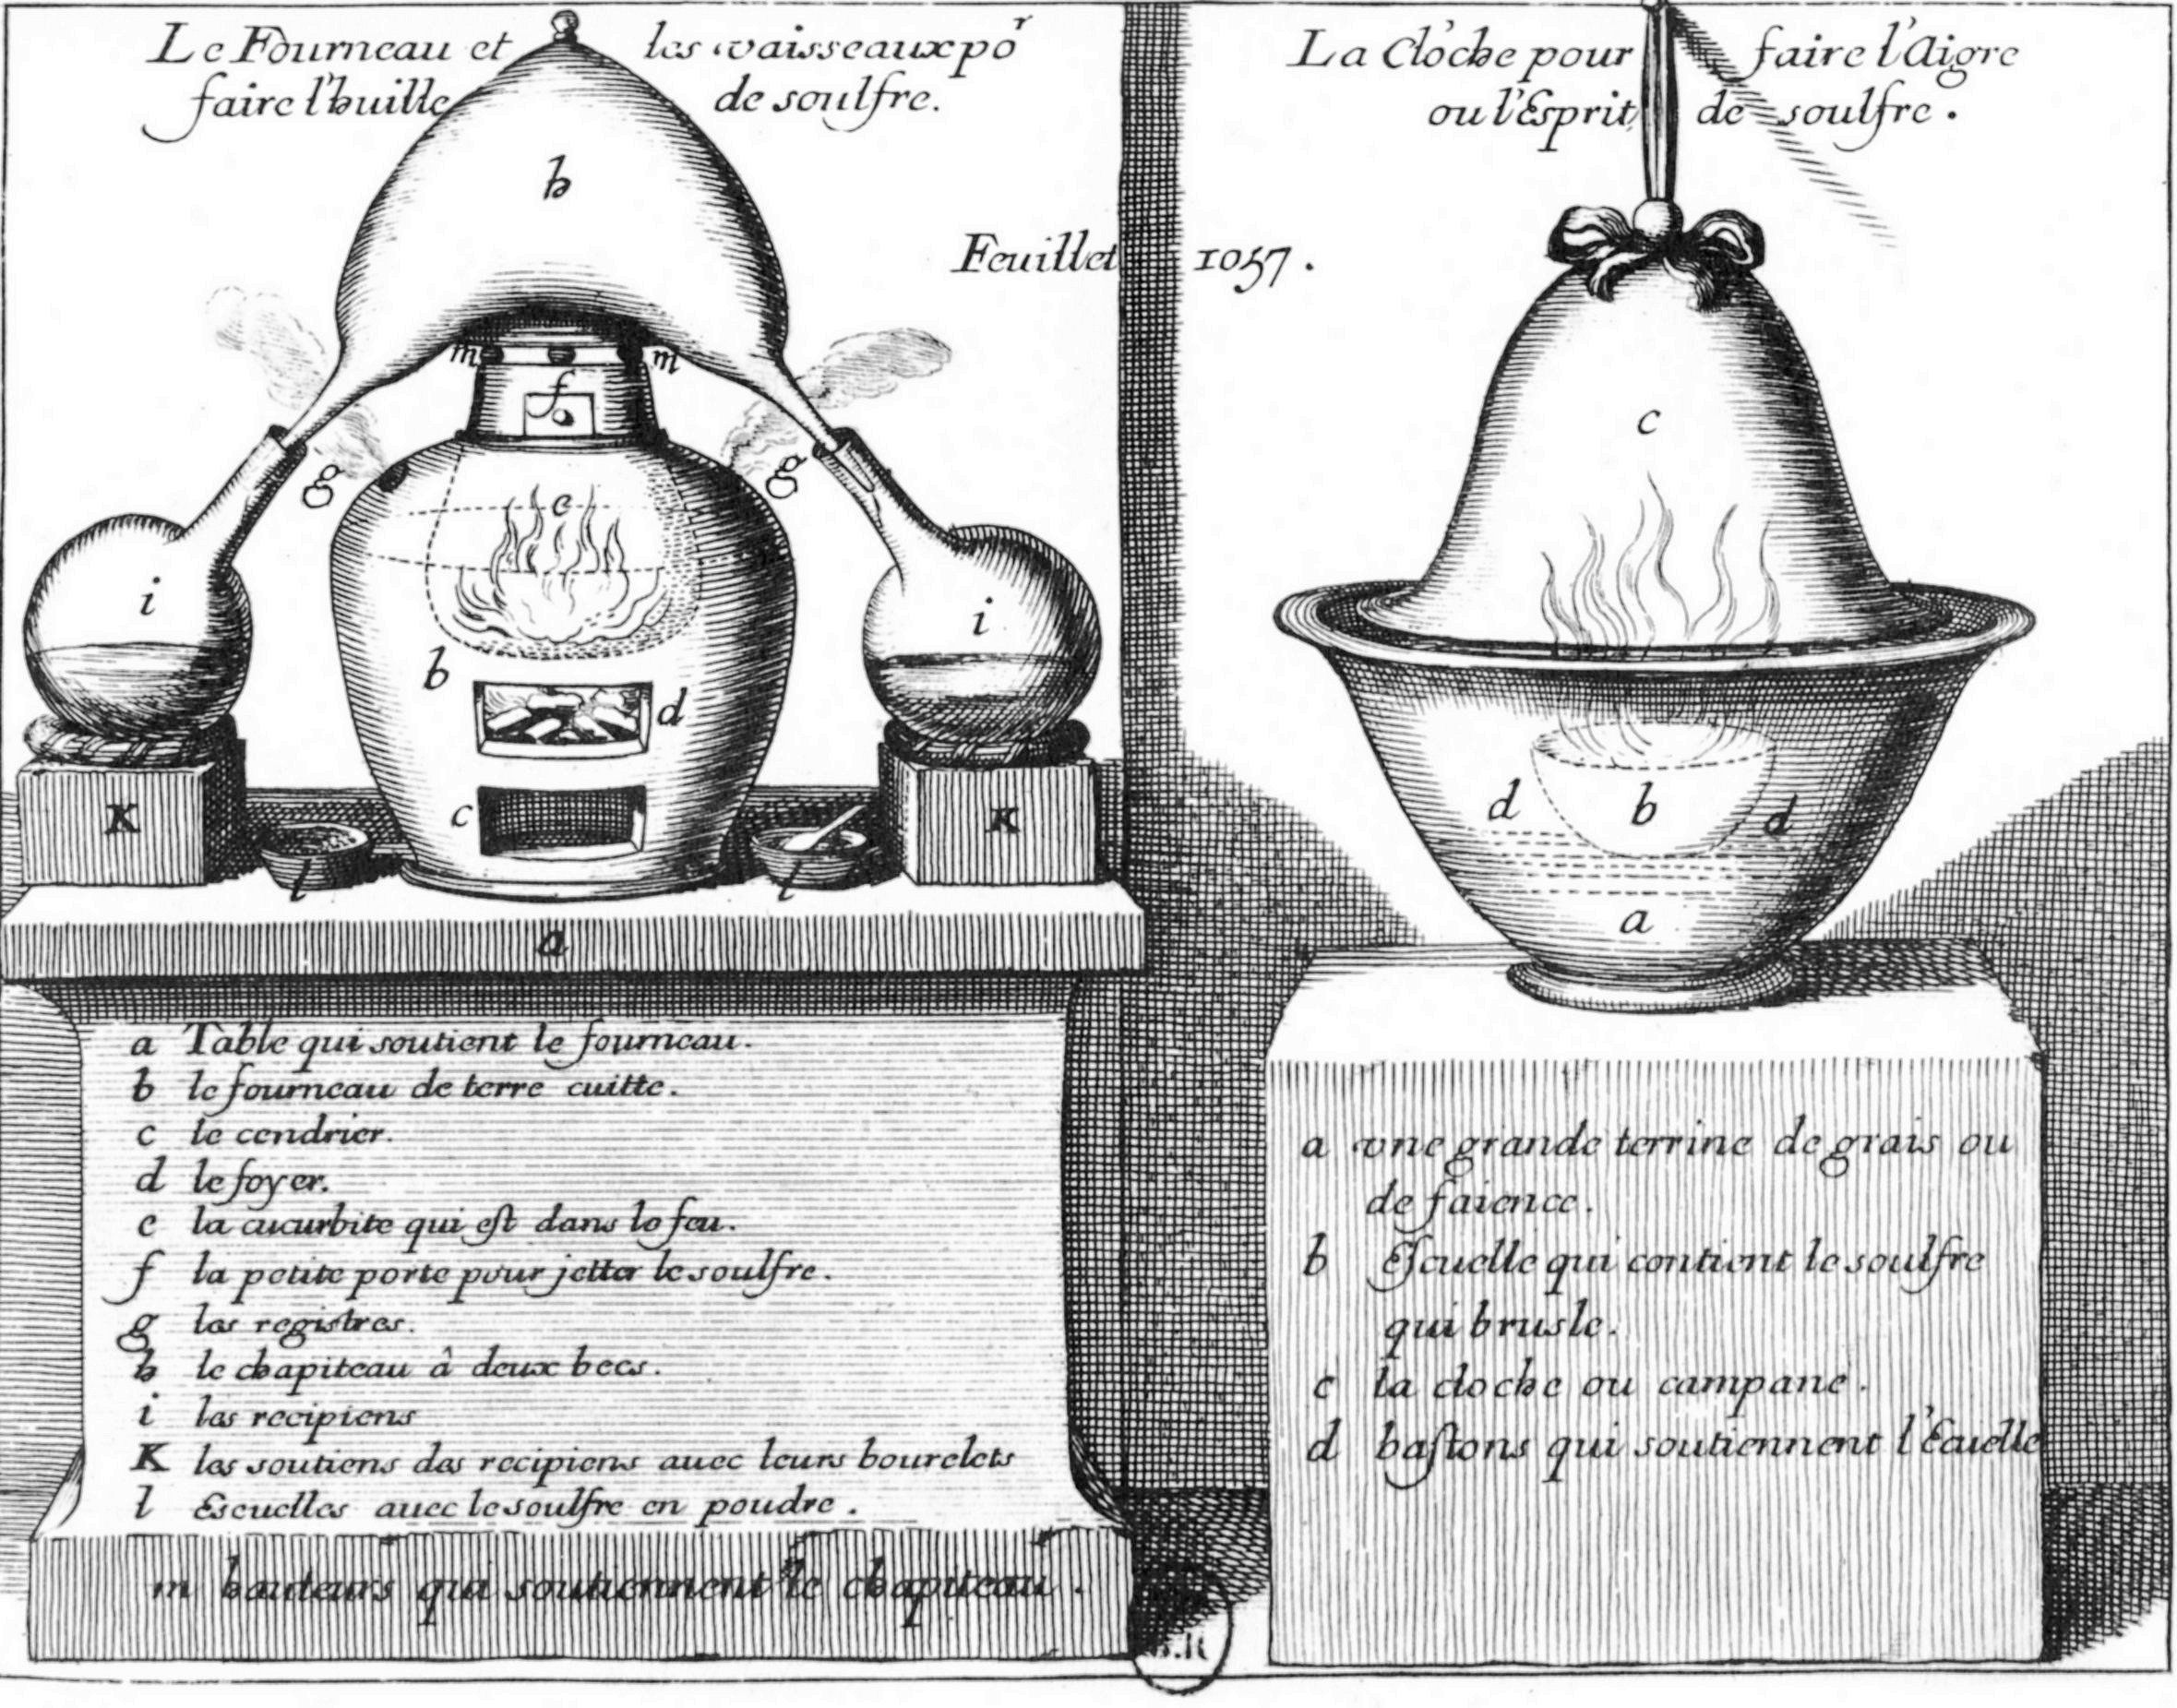 Le Fourneau et les vaisseaux poʳ
faire l'huille de soulfre.
La Cloche pour faire l'Aigre
ou l'Esprit de soulfre.
Feuillet 1057.
h
m m
f
g g
e
i i
b
d
c
K K
l l
a
c
d b d
a
a Table qui soutient le fourneau.
b le fourneau de terre cuitte.
c le cendrier.
d le foyer.
e la cucurbite qui est dans le feu.
f la petite porte pour jetter le soulfre.
g les registres.
h le chapiteau â deux becs.
i les recipiens
K les soutiens des recipiens auec leurs bourelets
l Escuelles auec le soulfre en poudre.
m hauteurs qui soutiennent le chapiteau.
a vne grande terrine de grais ou
de faience.
b Escuelle qui contient le soulfre
qui brusle.
c la cloche ou campane.
d bastons qui soutiennent l'Ecuelle